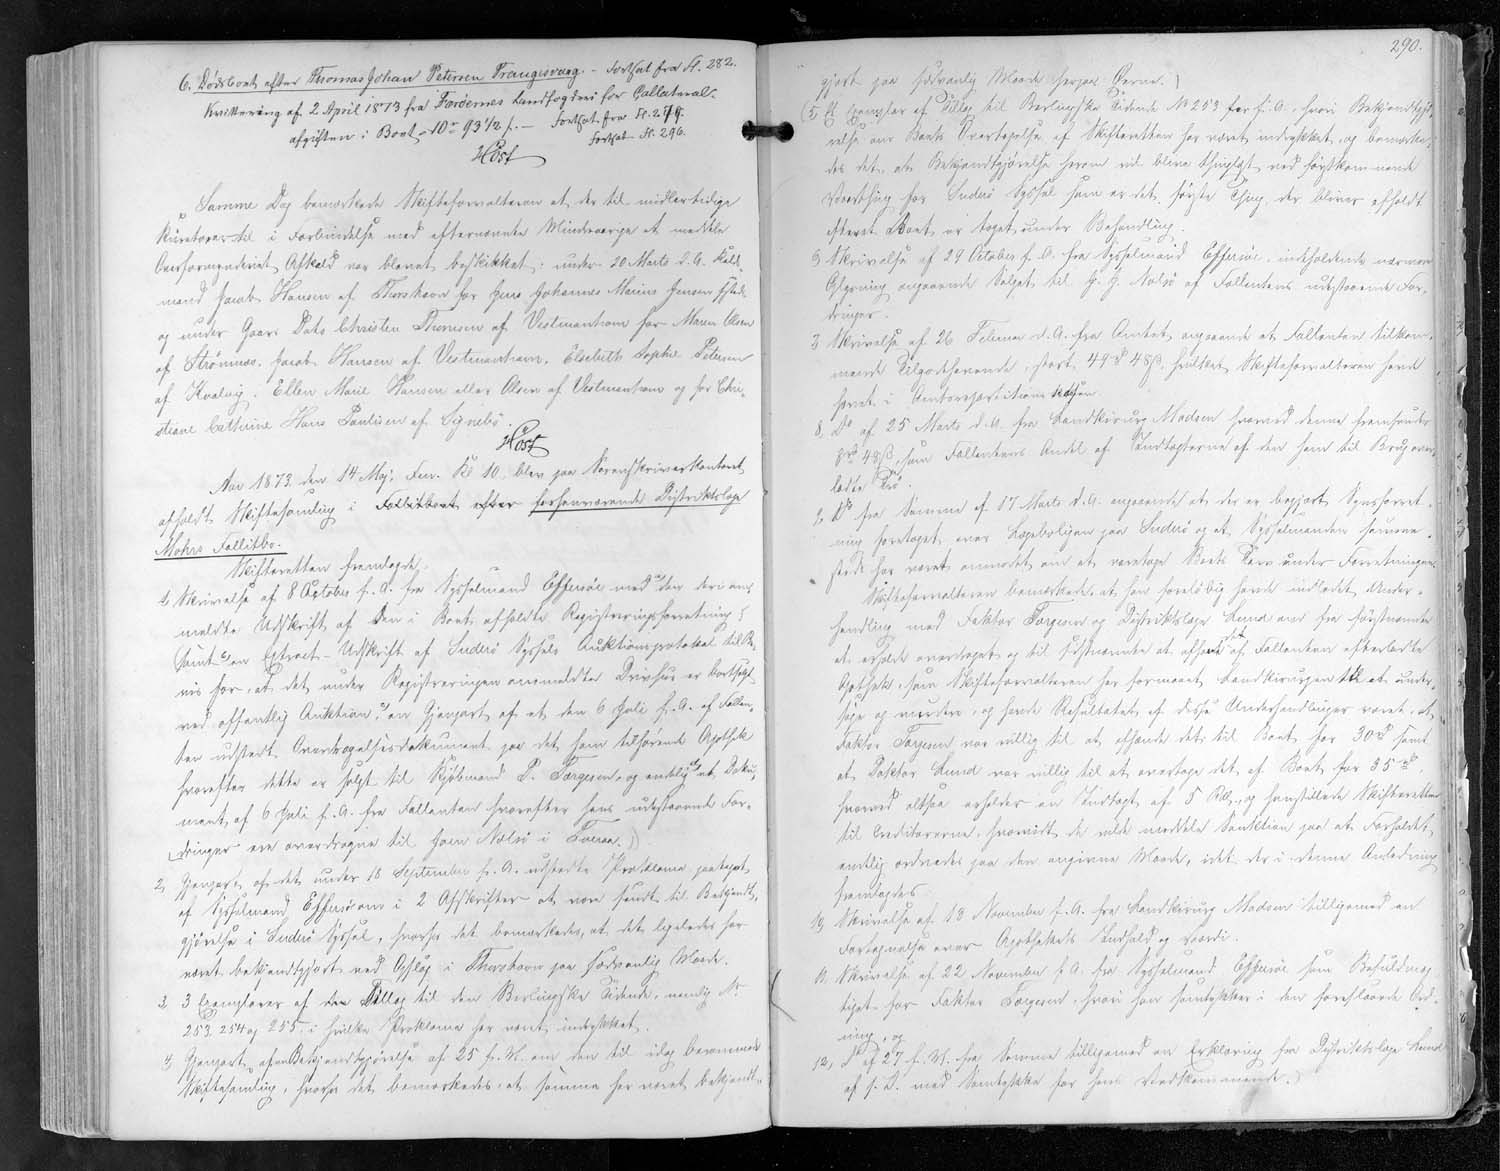 6. Dødsboet efter Thomas Johan Petersen Trangisvaag. - fortsat fra fl. 282.
Kvittering af 2 April 1873 fra Færøernes Landfogderi for Collateral-
afgiften i Boet - 10 rd 93 1/2 s. - fortsat fra fl. 277.
fortsat fl. 296.
Høst
Samme Dag bemærkede Skifteforvalteren at der til midlertidige
Kuratorer til i Forbindelse med efternævnte Mindreaarige at meddele
Overformynderiet Afkald var blevet beskikket: under 20 Marts d. A.
mand Jacob Hansen af Thorshavn for Jens Johannes Marius Jensen
og under Gaars Dato Christen Thomsen af Vestmanhavn for Maren Olsen
af Strømnæs, Jacob Hansen af Vestmanhavn, Elsebeth Sophie Petersen
af Kvalvig, Ellen Marie Hansen eller Olsen af Vestmanhavn og for Chri-
stiane Cathrine Hans Poulsen af Signebø.
Høst
Aar 1873 den 14 Maj, Fm. Kl 10, blev paa Sorenskriverkontoret
afholdt Skiftesamling i Fallitboet efter forhenværende Distriktslæge
Mohrs Fallitbo.
Skifteretten fremlagde:
1, Skrivelse af 8 October f. A. fra Sysselmand Effersøe med den deri an-
meldte Udskrift af den i Boet afholdte Registreringsforretning
samt en Extract-Udskrift af Suderø Syssels Auktionsprotokol til Be-
vis for, at det under Registreringen anmeldte Drivhus er bortsolgt
ved offentlig Auktion, en Gjenpart af et den 6 Juli f. A. af Fallen-
ten udstedt Overdragelsesdokument paa det ham tilhørende Apothek
hvorefter dette er solgt til Kjøbmand P. Torgersen, og endelig et Doku-
ment af 6 Juli f. A. fra Fallenten hvorefter hans udestaaende For-
dringer ere overdragne til Joen Nolsø i Tveraa.
2, Gjenpart af det under 18 September f. A. udstedte Proklama paategnet
af Sysselmand Effersøe om i 2 Afskrifter at være sendt til Bekjendt-
gjørelse i Suderø Syssel, hvorhos det bemærkedes, at det ligeledes har
været bekjendtgjort ved Opslag i Thorshavn paa sædvanlig Maade.
3, 3 Exemplarer af den Tillæg til den Berlingske Tidende, nemlig Nr
253, 254 og 255, i hvilke Proklama har været indrykket.
4, Gjenpart af en Bekjendtgjørelse af 25 f. M. om den til idag berammede
Skiftesamling, hvorhos det bemærkedes at samme har været bekjendt-
290.
gjort paa sædvanlig Maade herpaa Øerne.
5, Et Exemplar af Tillæg til Berlingske Tidende No 253 for f. A., hvori Bekjendtgjø-
relse om Boets Overtagelse af Skifteretten har været indrykket, og bemærke-
des det at Bekjendtgjørelse herom vil blive thinglæst ved førstkommende
Vaarthing for Suderø Syssel som er det første Thing der bliver afholdt
efterat Boet er taget under Behandling.
6, Skrivelse af 29 October f. A. fra Sysselmand Effersøe, indeholdende nærmere
Oplysning angaaende Salget til J. J. Nolsø af Fallentens udestaaende For-
dringer.
7, Skrivelse af 26 Februar d. A. fra Amtet angaaende et Fallenten tilkom-
mende Tilgodehavende, stort 49 rd 48 s, hvilket Skifteforvalteren havde
hævet i Amtsrepartitionskassen.
8, Do af 25 Marts d. A. fra Landkirurg Madsen hvorved denne fremsender
48 s, som Fallentens Andel af Indtægterne af den ham til Brug over-
ladte
9, Do fra Samme af 17 Marts d. A. angaaende at der er begjært Synsforret-
ning foretaget over Lægeboligen paa Suderø og at Sysselmanden samme-
steds har været anmodet om at varetage Boets Tarv under Forretningen.
Skifteforvalteren bemærkede, at han foreløbig havde indledet Under-
handling med Faktor Torgersen og Distriktslæge Lund om fra førstnævnte
at erholde overdraget og til sidstnævnte at afhænde det af Fallenten efterladte
Apothek, som Skifteforvalteren har formaaet Landkirurgen til at under-
søge og vurdere, og havde Resultatet af disse Underhandlinger været, at
Faktor Torgersen var villig til at afstaae det til Boet for 30 rd samt
at Doktor Lund var villig til at overtage det af Boet for 35 rd,
hvorved altsaa erholdes en Indtægt af 5 Rd, og henstillede Skifteretten
til Creditorerne, hvorvidt de vilde meddele Sanktion paa at Forholdet
endelig ordnedes paa den angivne Maade, idet der i denne Anledning
fremlagdes
10, Skrivelse af 13 November f. A. fra Landkirurg Madsen tilligemed en
Fortegnelse over Apothekets Indhold og Værdi.
11, Skrivelse af 22 November f A. fra Sysselmand Effersøe som Befuldmæg-
tiget for Faktor Torgersen, hvori han samtykker i den foreslaaede Ord-
ning, og
12, Do af 27 f. M. fra Samme tilligemed en Erklæring fra Distriktslæge Lund
af s. D. med Samtykke for hans Vedkommende.